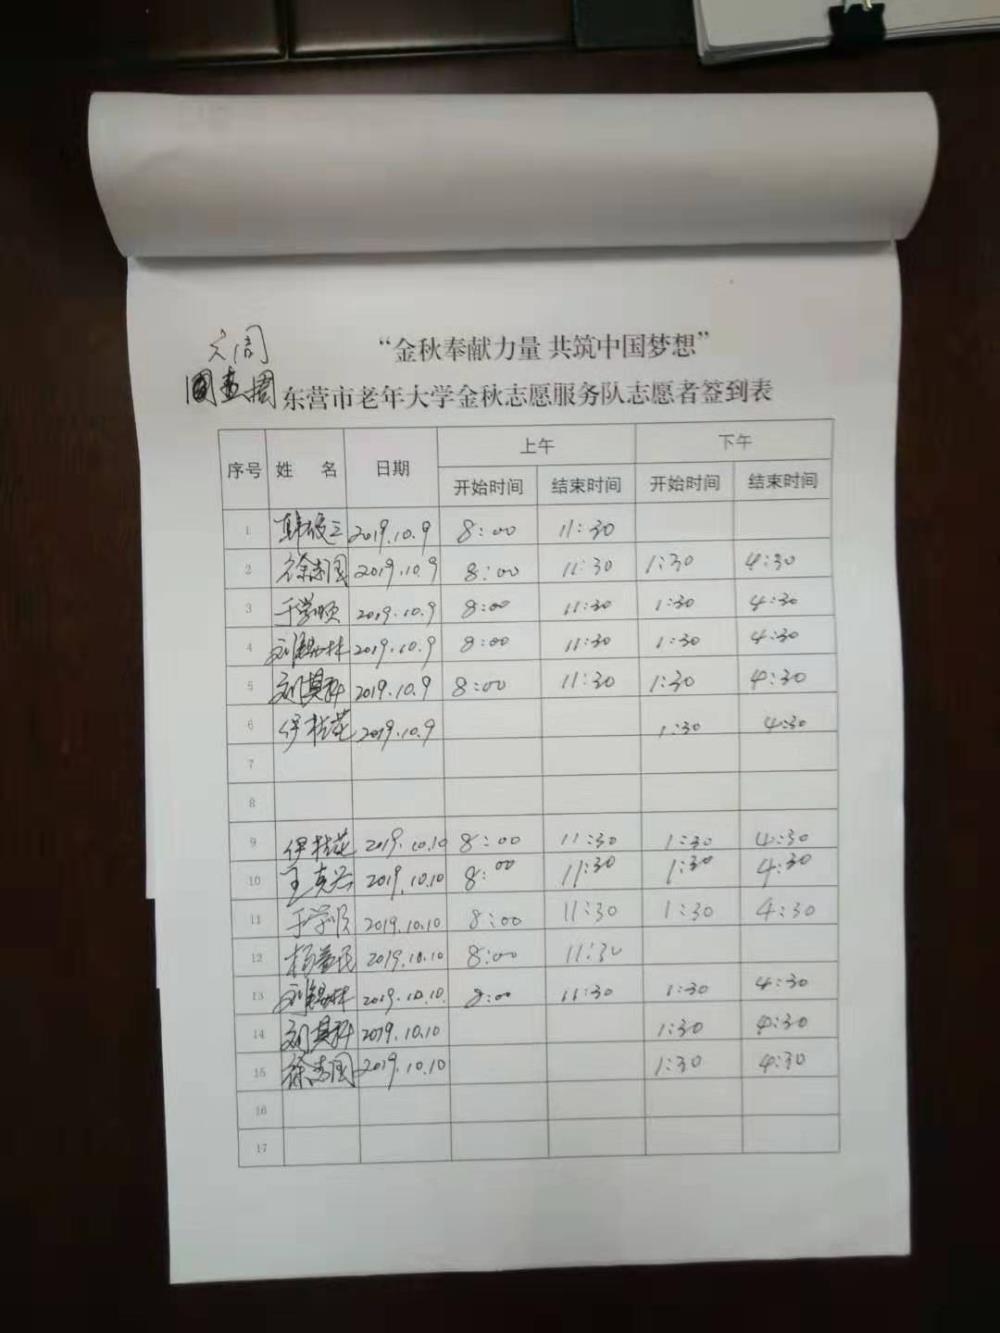 "金秋奉献力量 共筑中国梦想"
东营市老年大学金秋志愿服务队志愿者签到表
序号 姓 名 日期 上午 下午
开始时间 结束时间 开始时间 结束时间
1 2019.10.9 8:00 11:30
2 徐志国 2019.10.9 8:00 11:30 1:30 4:30
3 于学顺 2019.10.9 8:00 11:30 1:30 4:30
4 刘锡林 2019.10.9 8:00 11:30 1:30 4:30
5 刘其科 2019.10.9 8:00 11:30 1:30 4:30
6 伊桂花 2019.10.9 1:30 4:30
7
8
9 伊桂花 2019.10.10 8:00 11:30 1:30 4:30
10 2019.10.10 8:00 11:30 1:30 4:30
11 于学顺 2019.10.10 8:00 11:30 1:30 4:30
12 2019.10.10 8:00 11:30
13 刘锡林 2019.10.10 8:00 11:30 1:30 4:30
14 刘其科 2019.10.10 1:30 4:30
15 徐志国 2019.10.10 1:30 4:30
16
17